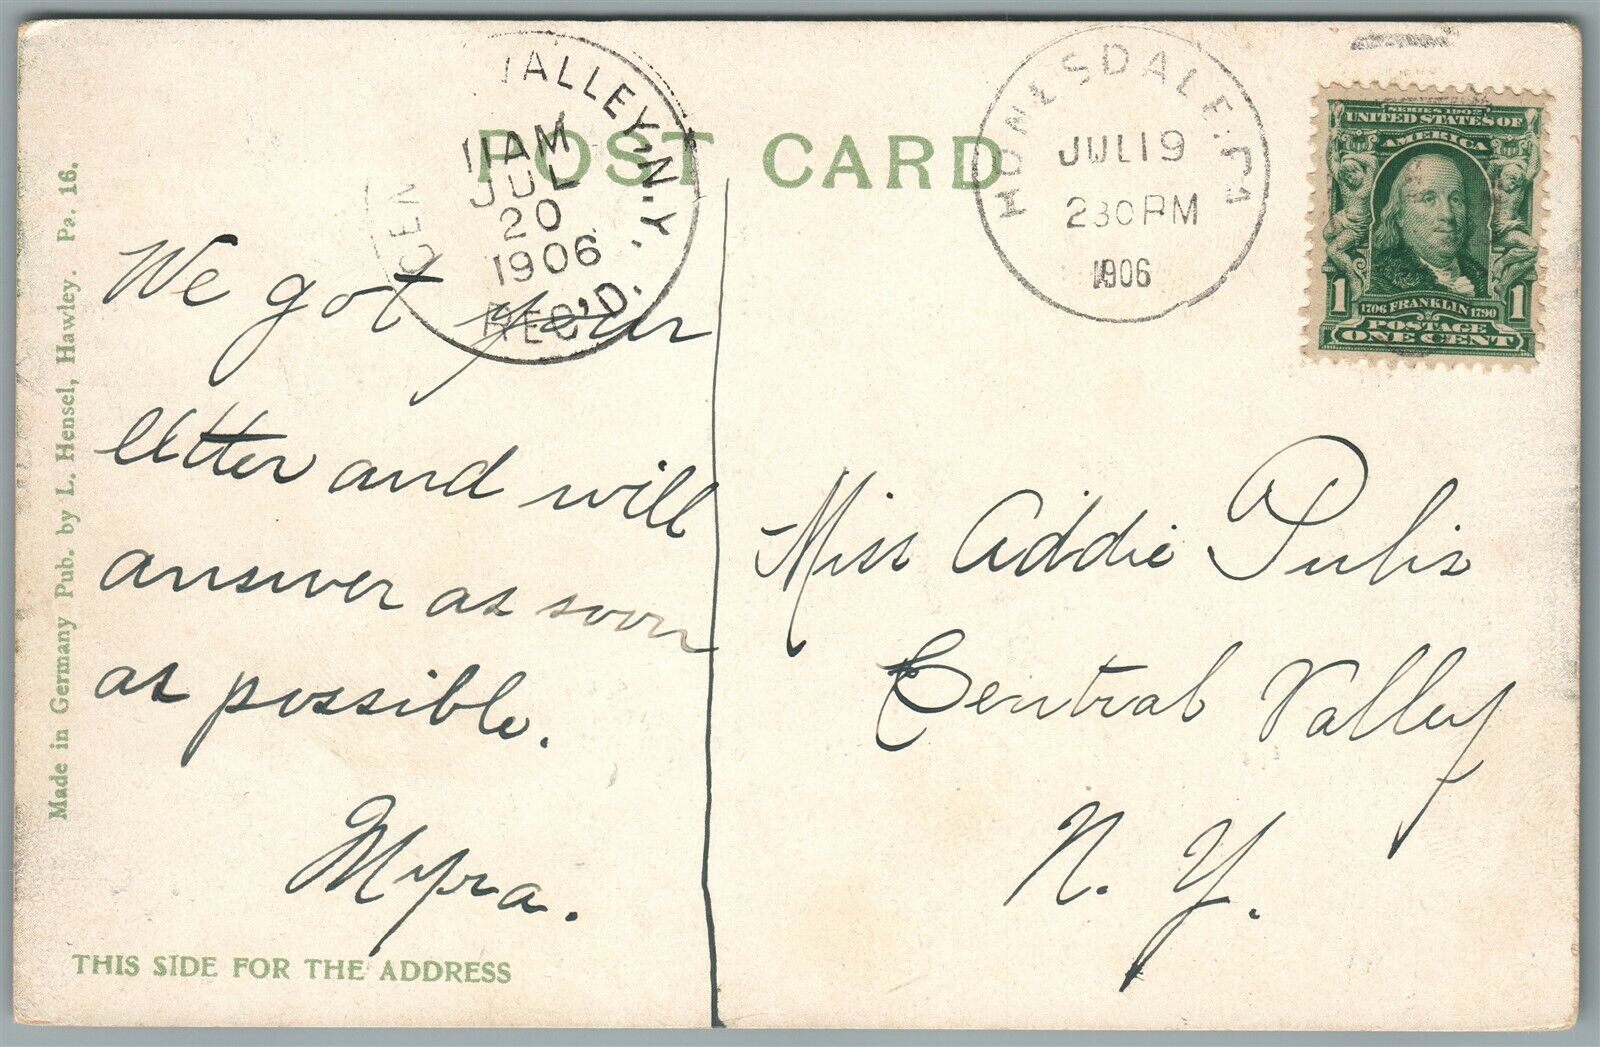 POST CARD
CEN VALLEY, N.Y.
11 AM
JUL
20
1906
REC'D.
HONESDALE, PA
JUL 19
230 PM
1906
SERIES 1902
UNITED STATES OF
AMERICA
1706 FRANKLIN 1790
1 POSTAGE 1
ONE CENT
We got your
letter and will
answer as soon
as possible.
Myra.
Miss Addie Pulis
Central Valley
N. Y.
THIS SIDE FOR THE ADDRESS
Made in Germany Pub. by L. Hensel, Hawley. Pa. 16.